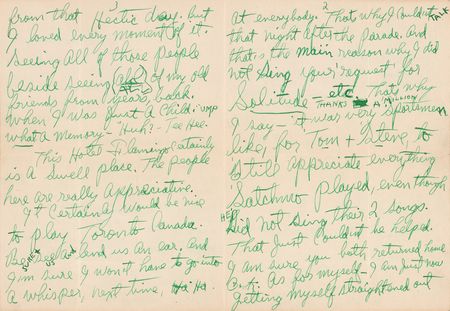 3
from that Hectic day. but
I loved every moment of it.
Seeing All of those people
beside seeing All of my old
friends from years, back.
When I was Just A Child. wow
What a memory - Huh? - Tee Hee.
This Hotel Flamingo Certainly
is A Swell place. The people
here are really Appreciative.
It Certainly would be nice
to play Toronto Canada.
SINCE Be
us an Ear. And
I'm sure I won't have to go into
A whisper, next time, Ha Ha.
2
at everybody. That's why I Couldn't TALK
that night After the Parade. And
that's the main reason why I did
not Sing your request for
Solitude - etc. That's why
THANKS A MILLION
I say - it was very Sportsmen
like, for Tom + Steve, to
Still Appreciate everything
Satchmo Played, even though
HE Did Not Sing Their 2 songs.
That Just Couldn't be helped.
I am sure you both returned home
O.K. As for myself - I am Just now
getting myself straightened out